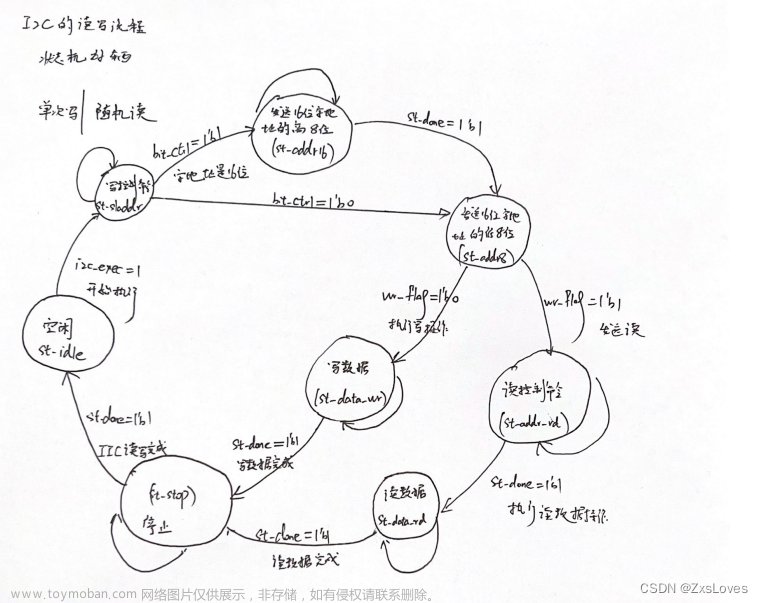 I2C的读写流程
状态机分析
单次写|随机读
发送16位字地
址的高8位
(st-addr16)
st-done=1'b1
bit-ctrl=1'b1
字地址是16位
写控制命令
st-sladdr
bit-ctrl=1'b0
发送16位字地
址的低8位
(st-addr8)
i2c-exec=1
开始执行
空闲
st-idle
wr-flag=1'b0
执行写操作
wr-flag=1'b1
发送读
写数据
(st-data-wr)
读控制命令
(st-addr-rd)
st-done=1'b1
IIC读写完成
st-done=1'b1
写数据完成
st-done=1'b1
执行读数据操作
(st-stop)
停止
读数据
st-data-rd
st-done=1'b1
读数据完成
www.toymoban.com 网络图片仅供展示，非存储，如有侵权请联系删除。
CSDN @ZxsLoves